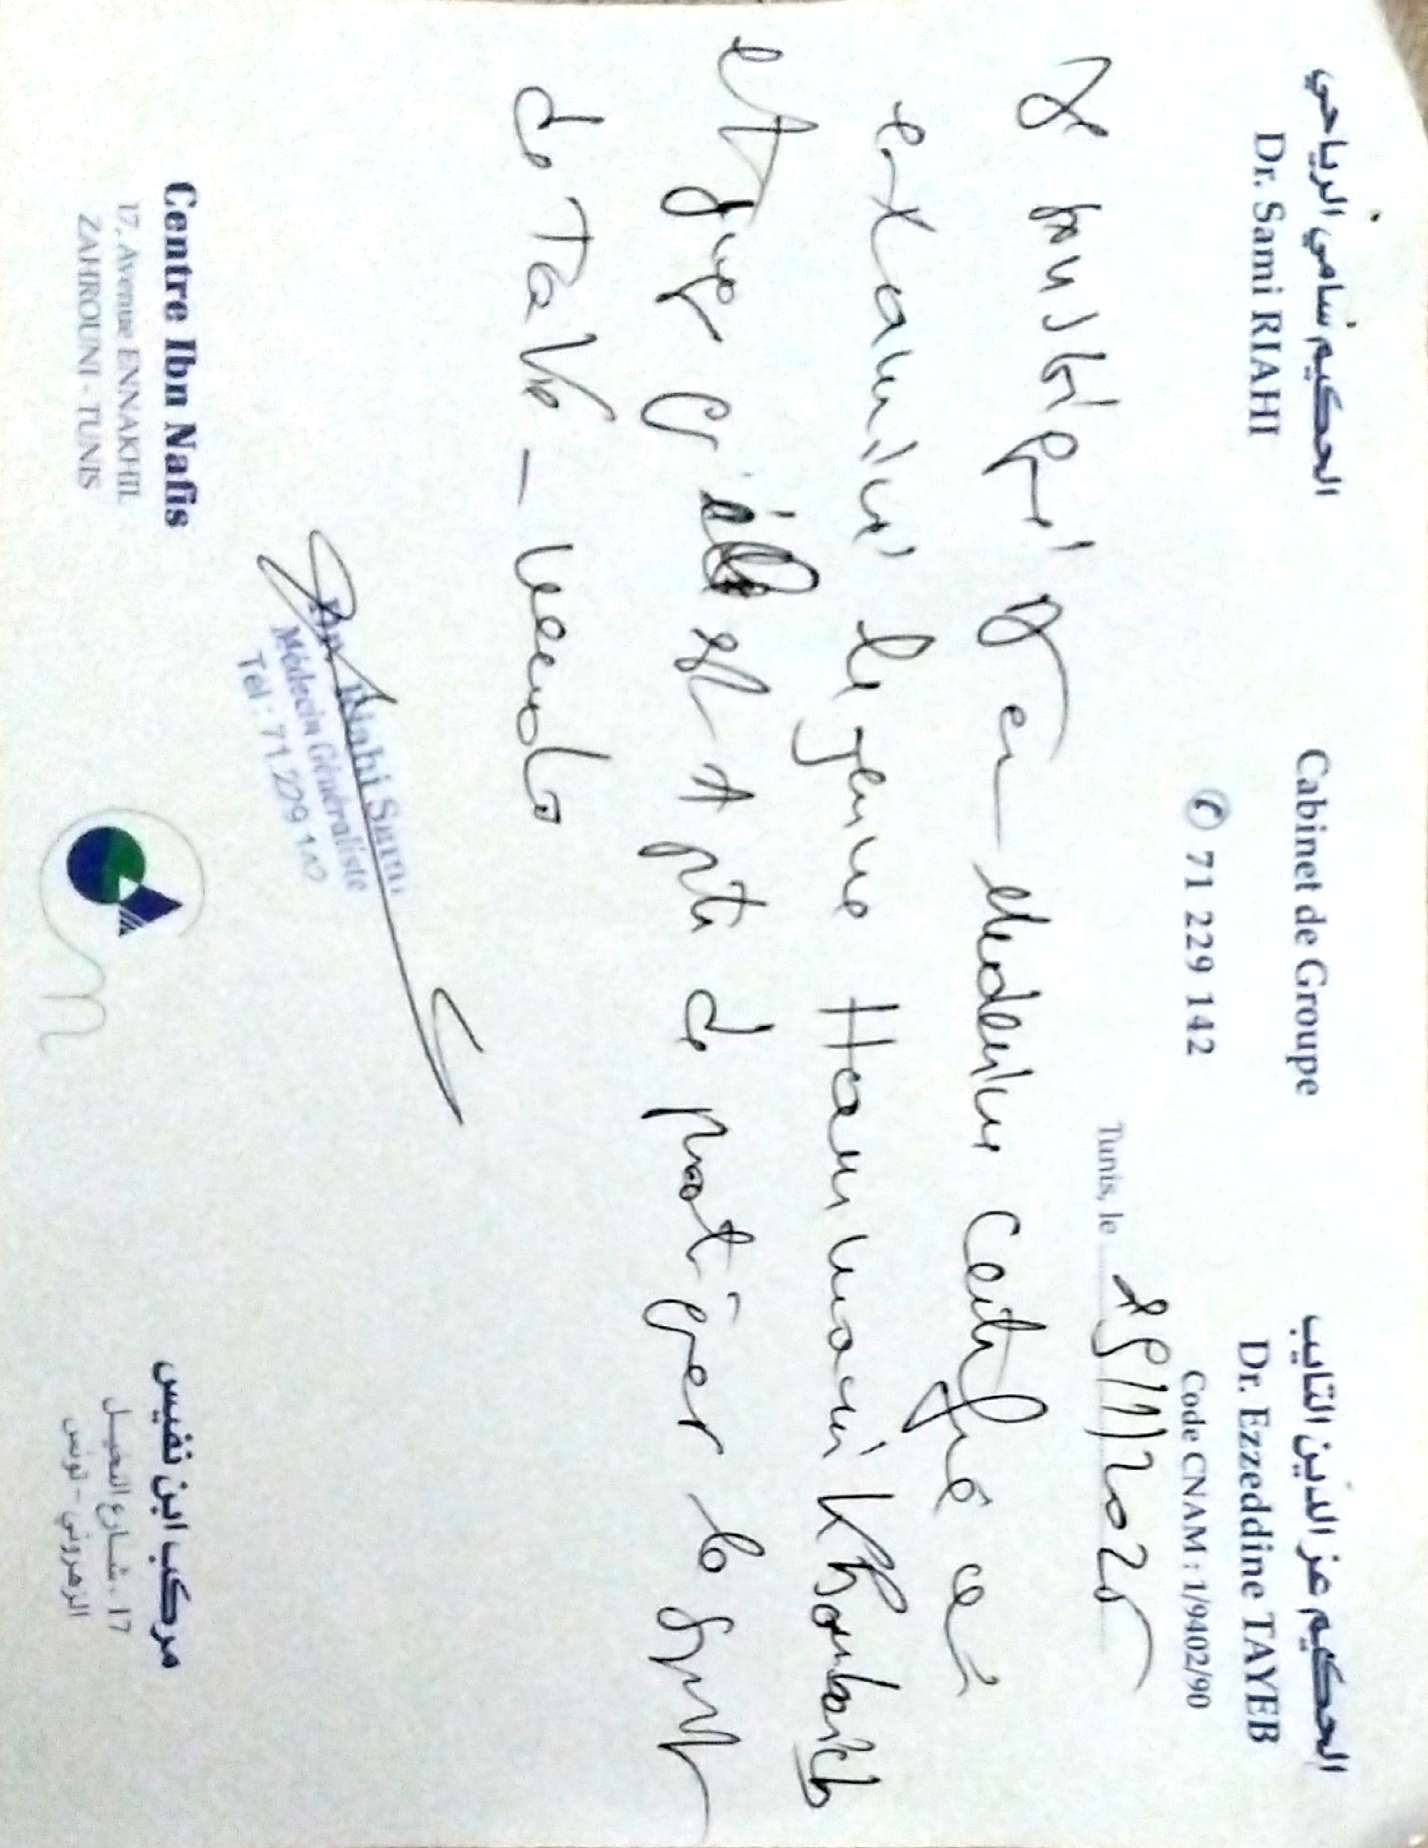 الحكيم سامي الرياحي
Dr. Sami RIAHI
Cabinet de Groupe
✆ 71 229 142
الحكيم عز الدين التايب
Dr. Ezzeddine TAYEB
Code CNAM : 1/9402/90
Tunis, le 25/11/2025
Je soussigné Dr en Medecine certifie a
examiné le jeune Hammami
et juge qu'elle est Apte de pratiquer le Sport
de
Riahi Sami
Médecin Généraliste
Tél : 71.229.142
Centre Ibn Nafis
17, Avenue ENNAKHIL
ZAHROUNI - TUNIS
مركب ابن نفيس
17، شارع النخيل
الزهروني - تونس